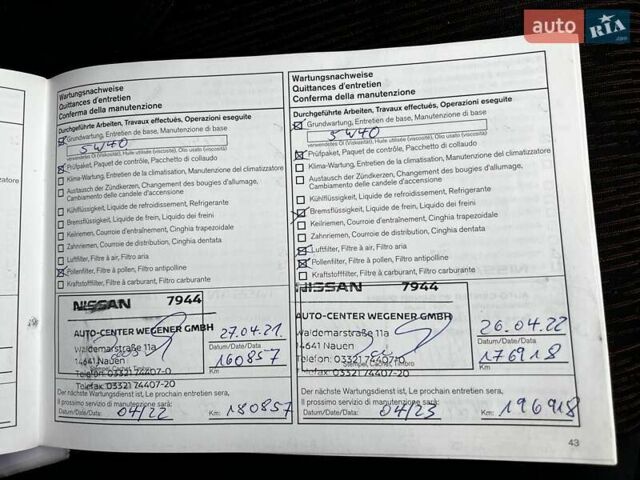 auto RIA
.com
Wartungsnachweise
Quittances d'entretien
Conferma della manutenzione
Durchgeführte Arbeiten, Travaux effectués, Operazioni eseguite
Grundwartung, Entretien de base, Manutenzione di base
5W40
verwendetes Öl (Viskosität), Huile utilisée (viscosité), Olio usato (viscosità)
Prüfpaket, Paquet de contrôle, Pacchetto di collaudo
Klima-Wartung, Entretien de la climatisation, Manutenzione del climatizzatore
Austausch der Zündkerzen, Changement des bougies d'allumage,
Cambiamento delle candele d'accensione
Kühlflüssigkeit, Liquide de refroidissement, Refrigerante
Bremsflüssigkeit, Liquide de frein, Liquido dei freini
Keilriemen, Courroie d'entraînement, Cinghia trapezoidale
Zahnriemen, Courroie de distribution, Cinghia dentata
Luftfilter, Filtre à air, Filtro aria
Pollenfilter, Filtre à pollen, Filtro antipolline
Kraftstofffilter, Filtre à carburant, Filtro carburante
NISSAN 7944
AUTO-CENTER WEGENER GMBH
Waldemarstraße 11a
14641 Nauen
Telefon: 03321 74407-0
Stempel, Cachet, Timbro
Telefax: 03321 74407-20
27.04.21
Datum/Date/Data:
160857
Km:
Der nächste Wartungsdienst ist, Le prochain entretien sera,
Il prossimo servizio di manutenzione sarà:
Datum/Date/Data: 04/22 Km: 180857
Wartungsnachweise
Quittances d'entretien
Conferma della manutenzione
Durchgeführte Arbeiten, Travaux effectués, Operazioni eseguite
Grundwartung, Entretien de base, Manutenzione di base
5W40
verwendetes Öl (Viskosität), Huile utilisée (viscosité), Olio usato (viscosità)
Prüfpaket, Paquet de contrôle, Pacchetto di collaudo
Klima-Wartung, Entretien de la climatisation, Manutenzione del climatizzatore
Austausch der Zündkerzen, Changement des bougies d'allumage,
Cambiamento delle candele d'accensione
Kühlflüssigkeit, Liquide de refroidissement, Refrigerante
Bremsflüssigkeit, Liquide de frein, Liquido dei freini
Keilriemen, Courroie d'entraînement, Cinghia trapezoidale
Zahnriemen, Courroie de distribution, Cinghia dentata
Luftfilter, Filtre à air, Filtro aria
Pollenfilter, Filtre à pollen, Filtro antipolline
Kraftstofffilter, Filtre à carburant, Filtro carburante
NISSAN 7944
AUTO-CENTER WEGENER GMBH
Waldemarstraße 11a
14641 Nauen
Telefon: 03321 74407-0
Stempel, Cachet, Timbro
Telefax: 03321 74407-20
26.04.22
Datum/Date/Data:
176918
Km:
Der nächste Wartungsdienst ist, Le prochain entretien sera,
Il prossimo servizio di manutenzione sarà:
Datum/Date/Data: 04/23 Km: 196918
43